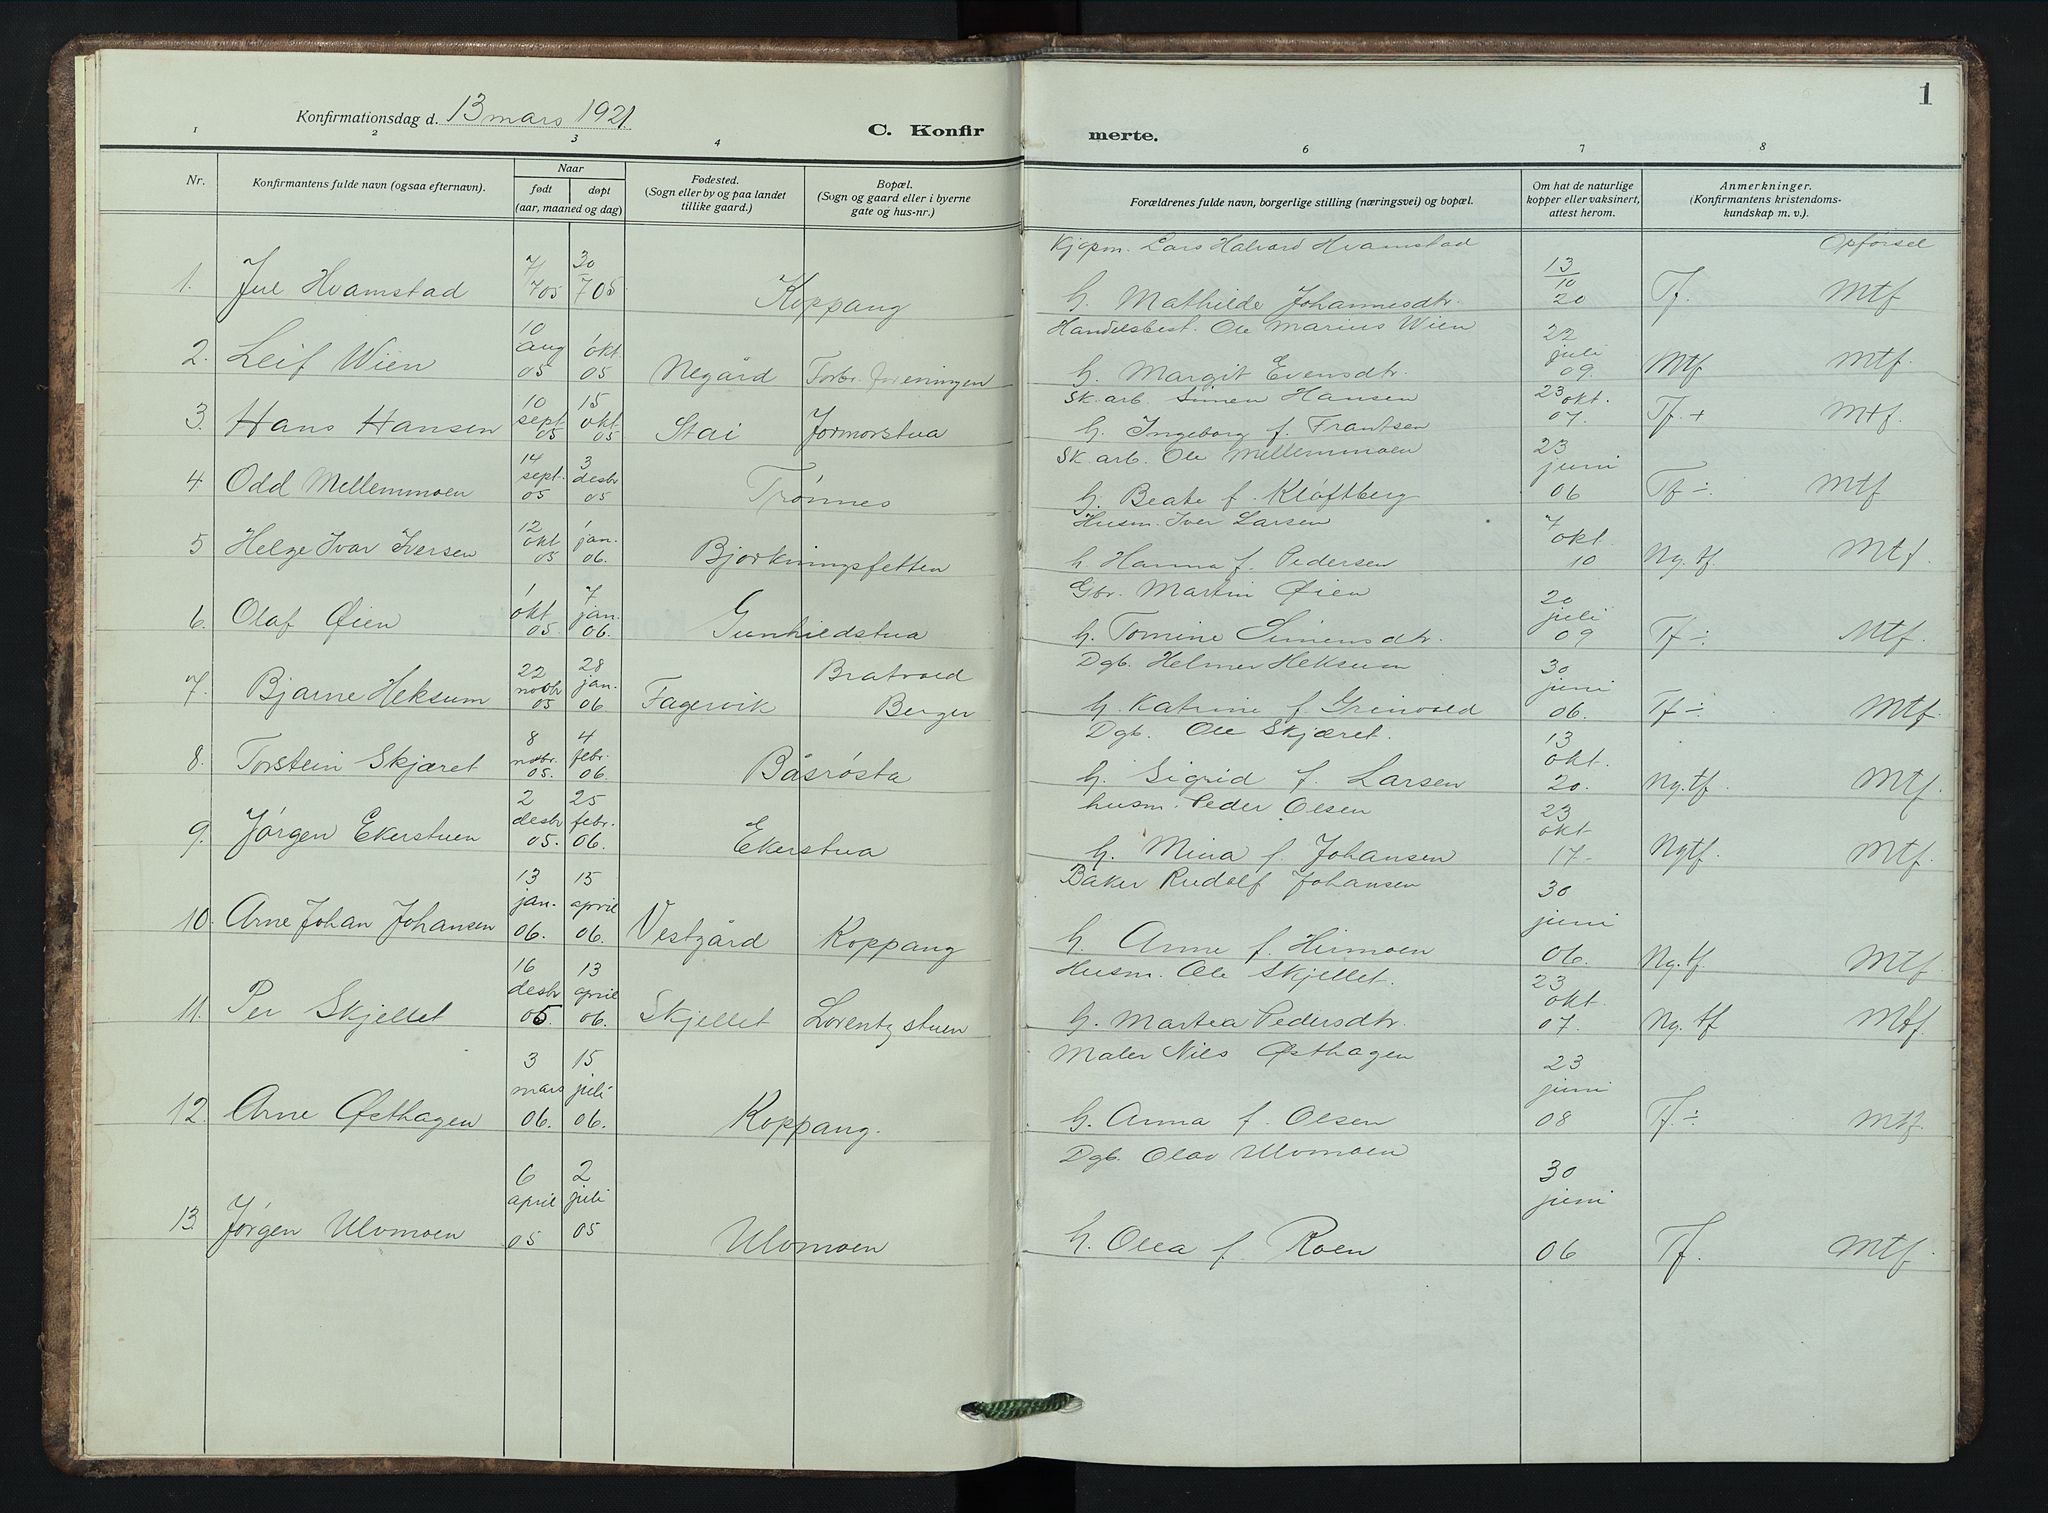 1
Konfirmationsdag d. 13 mars 1921.
C. Konfirmerte.
1 2 3 4 6 7 8
Nr.
Konfirmantens fulde navn (ogsaa efternavn).
Naar
født døpt
(aar, maaned og dag)
Fødested.
(Sogn eller by og paa landet
tillike gaard.)
Bopæl.
(Sogn og gaard eller i byerne
gate og hus-nr.)
Forældrenes fulde navn, borgerlige stilling (næringsvei) og bopæl.
Om hat de naturlige
kopper eller vaksinert,
attest herom.
Anmerkninger.
(Konfirmantens kristendoms-
kundskap m. v.)
Kjøpm. Lars Halvard Hvamstad Opførsel
1. Jul Hvamstad 7/7 05 30/7 05 Koppang H. Mathilde Johannesdtr. 13/10 20 Tf. Mtf
Handelsbest. Ole Marius Wien
2. Leif Wien 10 aug 05 1 okt. 05 Negård Forbr. foreningen H. Margit Evensdtr. 22 juli 09. Mtf Mtf.
Sk. arb. Simen Hansen
3. Hans Hansen 10 sept 05 15 okt. 05 Stai Jormorstua H. Ingeborg f. Frantsen 23 okt. 07. Tf. + Mtf.
Sk. arb. Ole Mellemmoen
4. Odd Mellemmoen 14 sept. 05 3 desbr 05 Trønnes H. Beate f. Kløftberg 23 juni 06 Tf ÷ Mtf
Husm. Iver Larsen
5 Helge Ivar Iversen 12 okt 05 1 jan. 06. Bjørkningsfetten H. Hanna f. Pedersen 7 okt. 10 Ng. tf. Mtf.
Gbr. Martin Øien
6. Olaf Øien 1 okt 05. 7 jan. 06. Gunhildstua H. Tomine Simensdtr. 20 juli 09 Tf ÷ Mtf.
Dgb. Helmer Heksum
7. Bjarne Heksum 22 novbr 05 28 jan. 06. Fagervik Bratvold Berger H. Katrine f. Grinvold 30 juni 06. Tf ÷ Mtf.
Dgb. Ole Skjæret.
8. Torstein Skjæret 8 novbr. 05. 4 febr. 06. Båsrøsta H. Sigrid f. Larsen 13 okt. 20. Ng. tf. Mtf.
husm. Peder Olsen
9. Jørgen Ekerstuen 2 desbr 05. 25 febr. 06. Ekerstua H. Mina f. Johansen 23 okt 17- Ngtf. Mtf.
Baker Rudolf Johansen
10. Arne Johan Johansen 13 jan. 06. 15 april 06. Vestgård Koppang H. Anne f. Hirmoen 30 juni 06. Ng. tf. Mtf.
Husm. Ole Skjellet.
11. Per Skjellet 16 desbr 05. 13 april 06. Skjellet Lorentzstuen H. Martea Pedersdtr. 23 okt. 07. Ng. tf Mtf.
Maler Nils Østhagen
12. Arne Østhagen 3 mars 06. 15 juli 06. Koppang. H. Anna f. Olsen 23 juni 08 Tf. ÷ Mtf.
Dgb. Olav Ulvmoen
13. Jørgen Ulvmoen 6 april 05 2 juli 05 Ulvmoen H. Olea f. Roen 30 juni 06 Tf. Mtf.